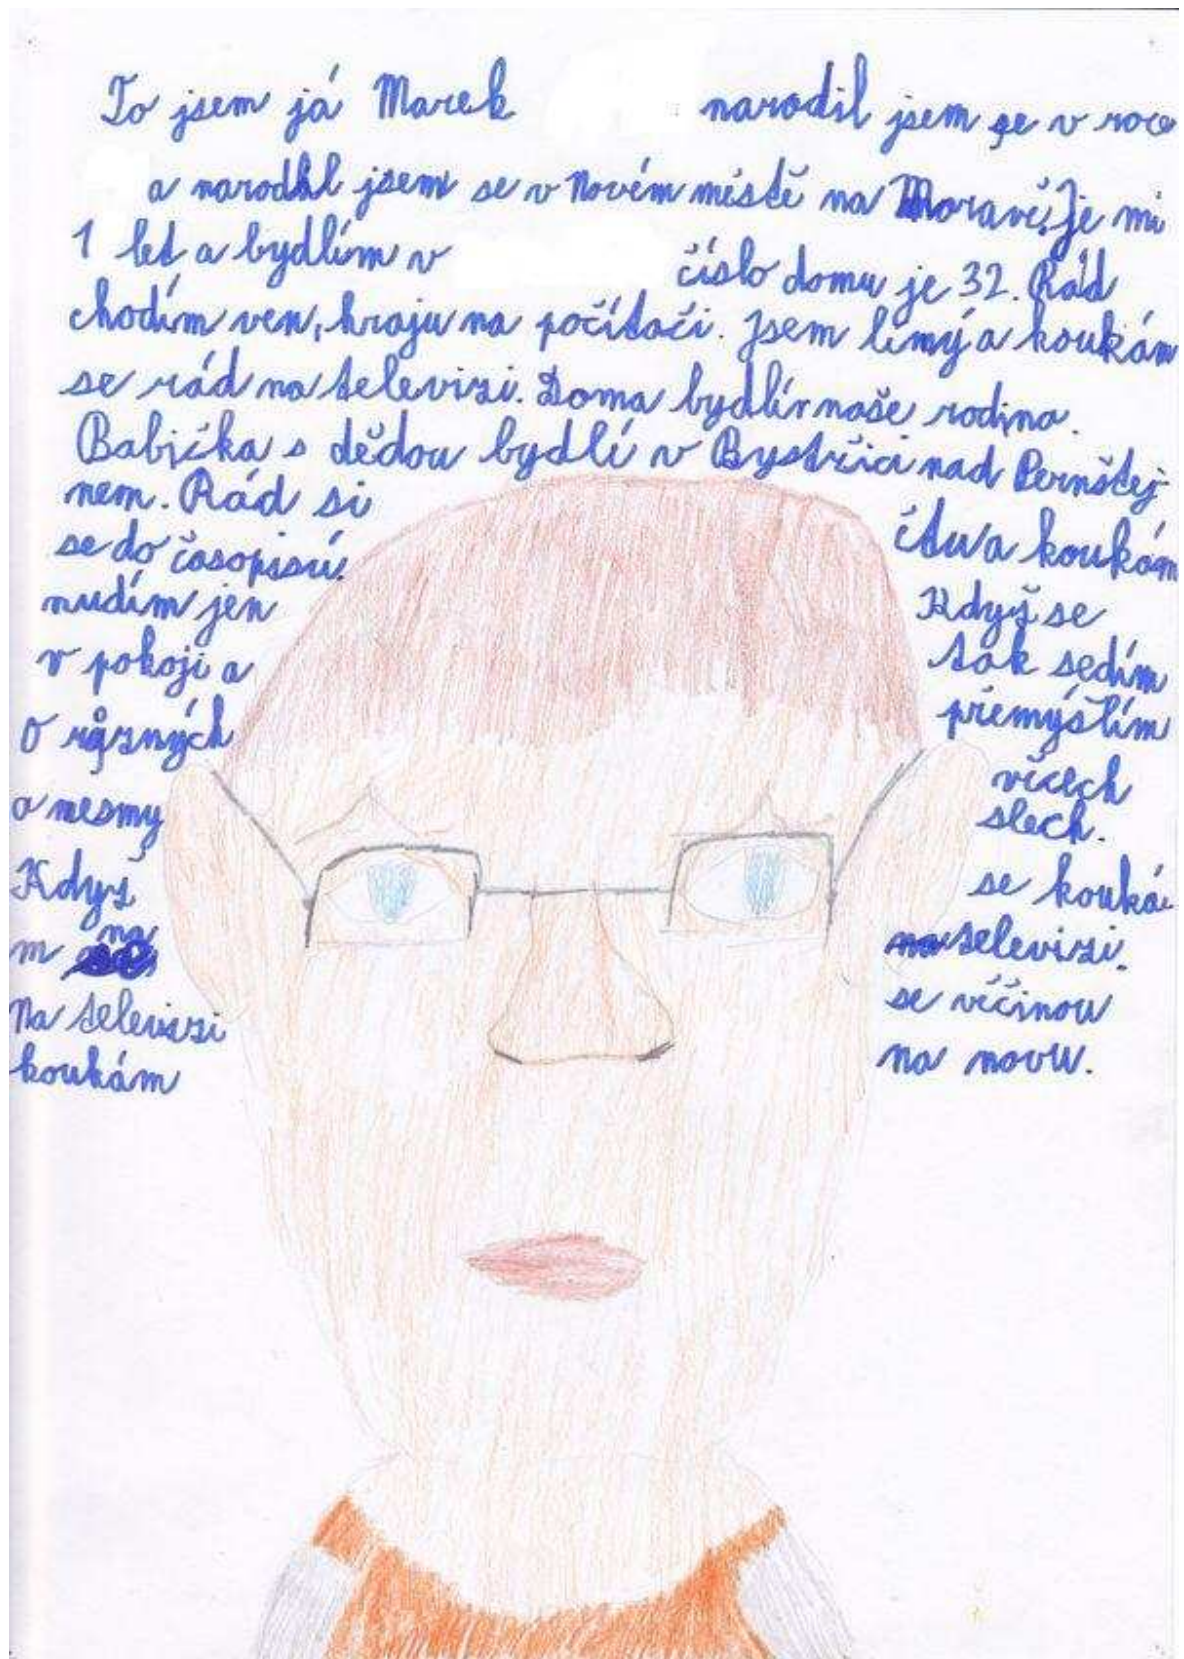 To jsem já Marek narodil jsem se v roce
a narodil jsem se v Novém městě na Moravě. Je mi
1 let a bydlím v číslo domu je 32. Rád
chodím ven, hraju na počítači. Jsem líný a koukám
se rád na televizi. Doma bydlí naše rodina.
Babička s dědou bydlí v Bystřici nad Pernštej
nem. Rád si čtu a koukám
se do časopisů. Když se
nudím jen tak sedím
v pokoji a přemýšlím
O různých věcech
a nesmy slech.
Když se kouká
m na televizi.
Na televizi se věčinou
koukám na novu.